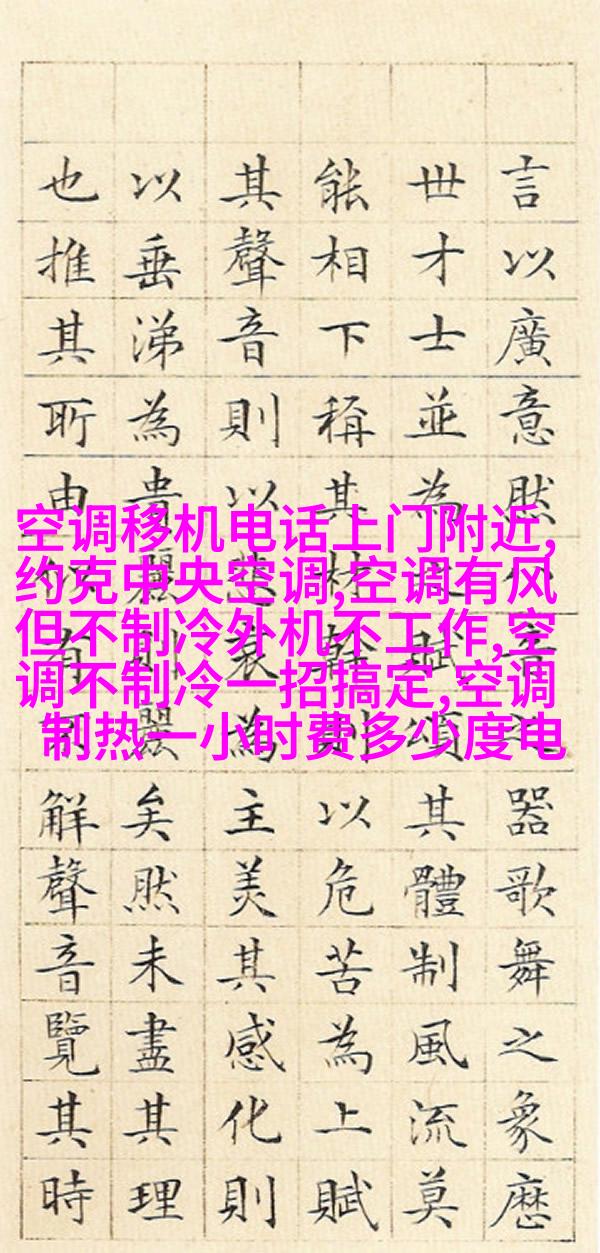 言以廣意然音之器歌舞之象歷
世才士並為之賦頌其體制風流莫
能相下稱其材幹則以危苦為上賦
其聲音則以悲哀為主美其感化則
以垂涕為貴則矣然未盡其理
也推其所由似有解聲音覽其時
空调移机电话上门附近,
约克中央空调,空调有风
但不制冷外机不工作,空
调不制冷一招搞定,空调
制热一小时费多少度电